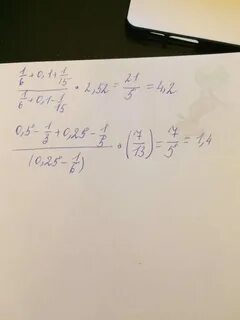 (1/6 + 0,1 + 1/15) / (1/6 + 0,1 - 1/15) • 2,52 = 21/5 = 4,2
(0,5 - 1/3 + 0,25 - 1/5) / (0,25 - 1/6) • (7/13) = 7/5 = 1,4